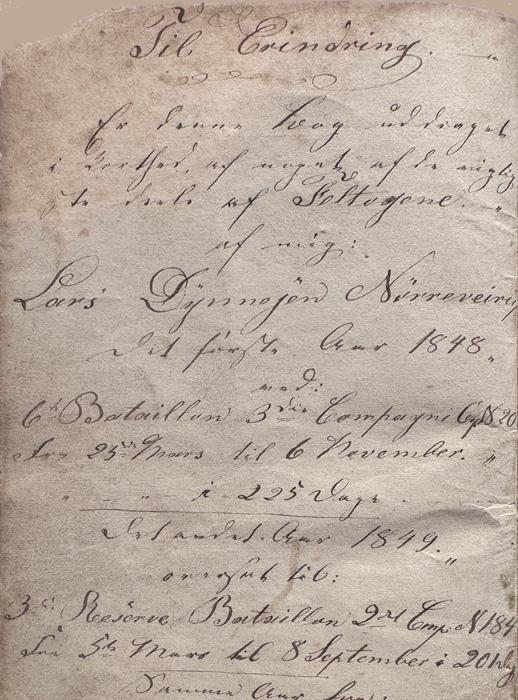 Til Erindring.
Er denne Bog uddraget
i Korthed, af noget af de vigtig
ste deele af Feltogene. "
af mig:
Lars Dynnesen Nörreveir
Det förste Aar 1848 "
ved:
6te Bataillon 3die Compagni No 20
Fra 25de Mars til 6 November. "
" - " i 225 Dage
Det andet Aar 1849. "
oversat til:
3die Reserve Bataillon 2det Comp. N 184
Fra 5te Mars til 8 September i 201 Dag
Samme Aar fra: